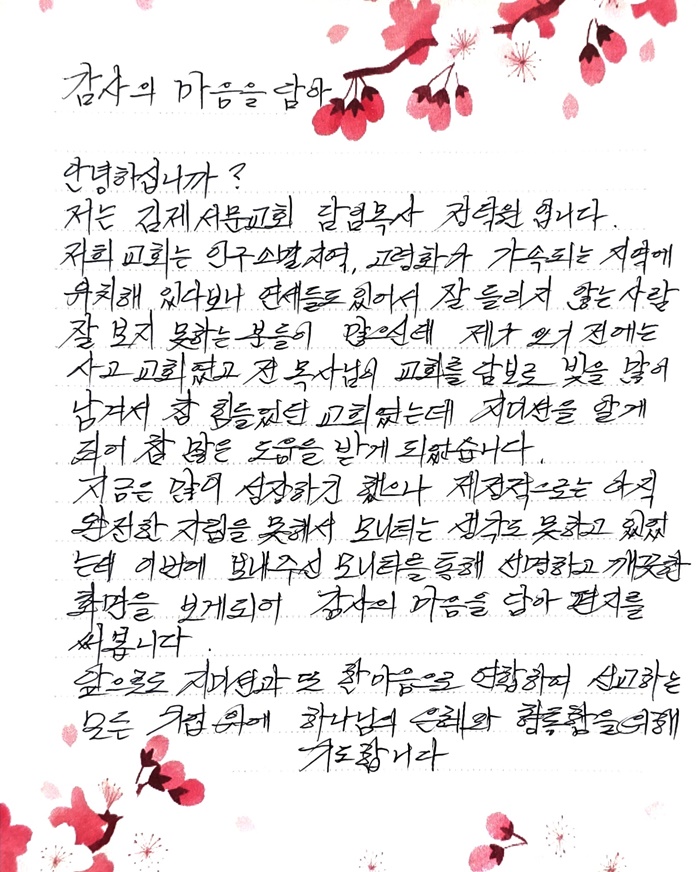 감사의 마음을 담아
안녕하십니까?
저는 김제서문교회 담임목사 입니다.
저희 교회는 인구소멸지역, 고령화가 가속되는 지역에
위치해 있다보니 연세들도 있어서 잘 들리지 않는 사람
잘 보지 못하는 분들이 많으신데 제가 오기 전에는
사고 교회였고 전 목사님의 교회를 담보로 빚을 많이
남겨서 참 힘들었던 교회였는데 지미션을 알게
되어 참 많은 도움을 받게 되었습니다.
지금은 많이 성장하긴 했으나 재정적으로는 아직
완전한 자립을 못해서 모니터는 생각도 못하고 있었
는데 이번에 보내주신 모니터를 통해 선명하고 깨끗한
화면을 보게되어 감사의 마음을 담아 편지를
써봅니다.
앞으로도 지미션과 또 한마음으로 연합하여 선교하는
모든 기업 위에 하나님의 은혜와 형통함을 위해
기도합니다